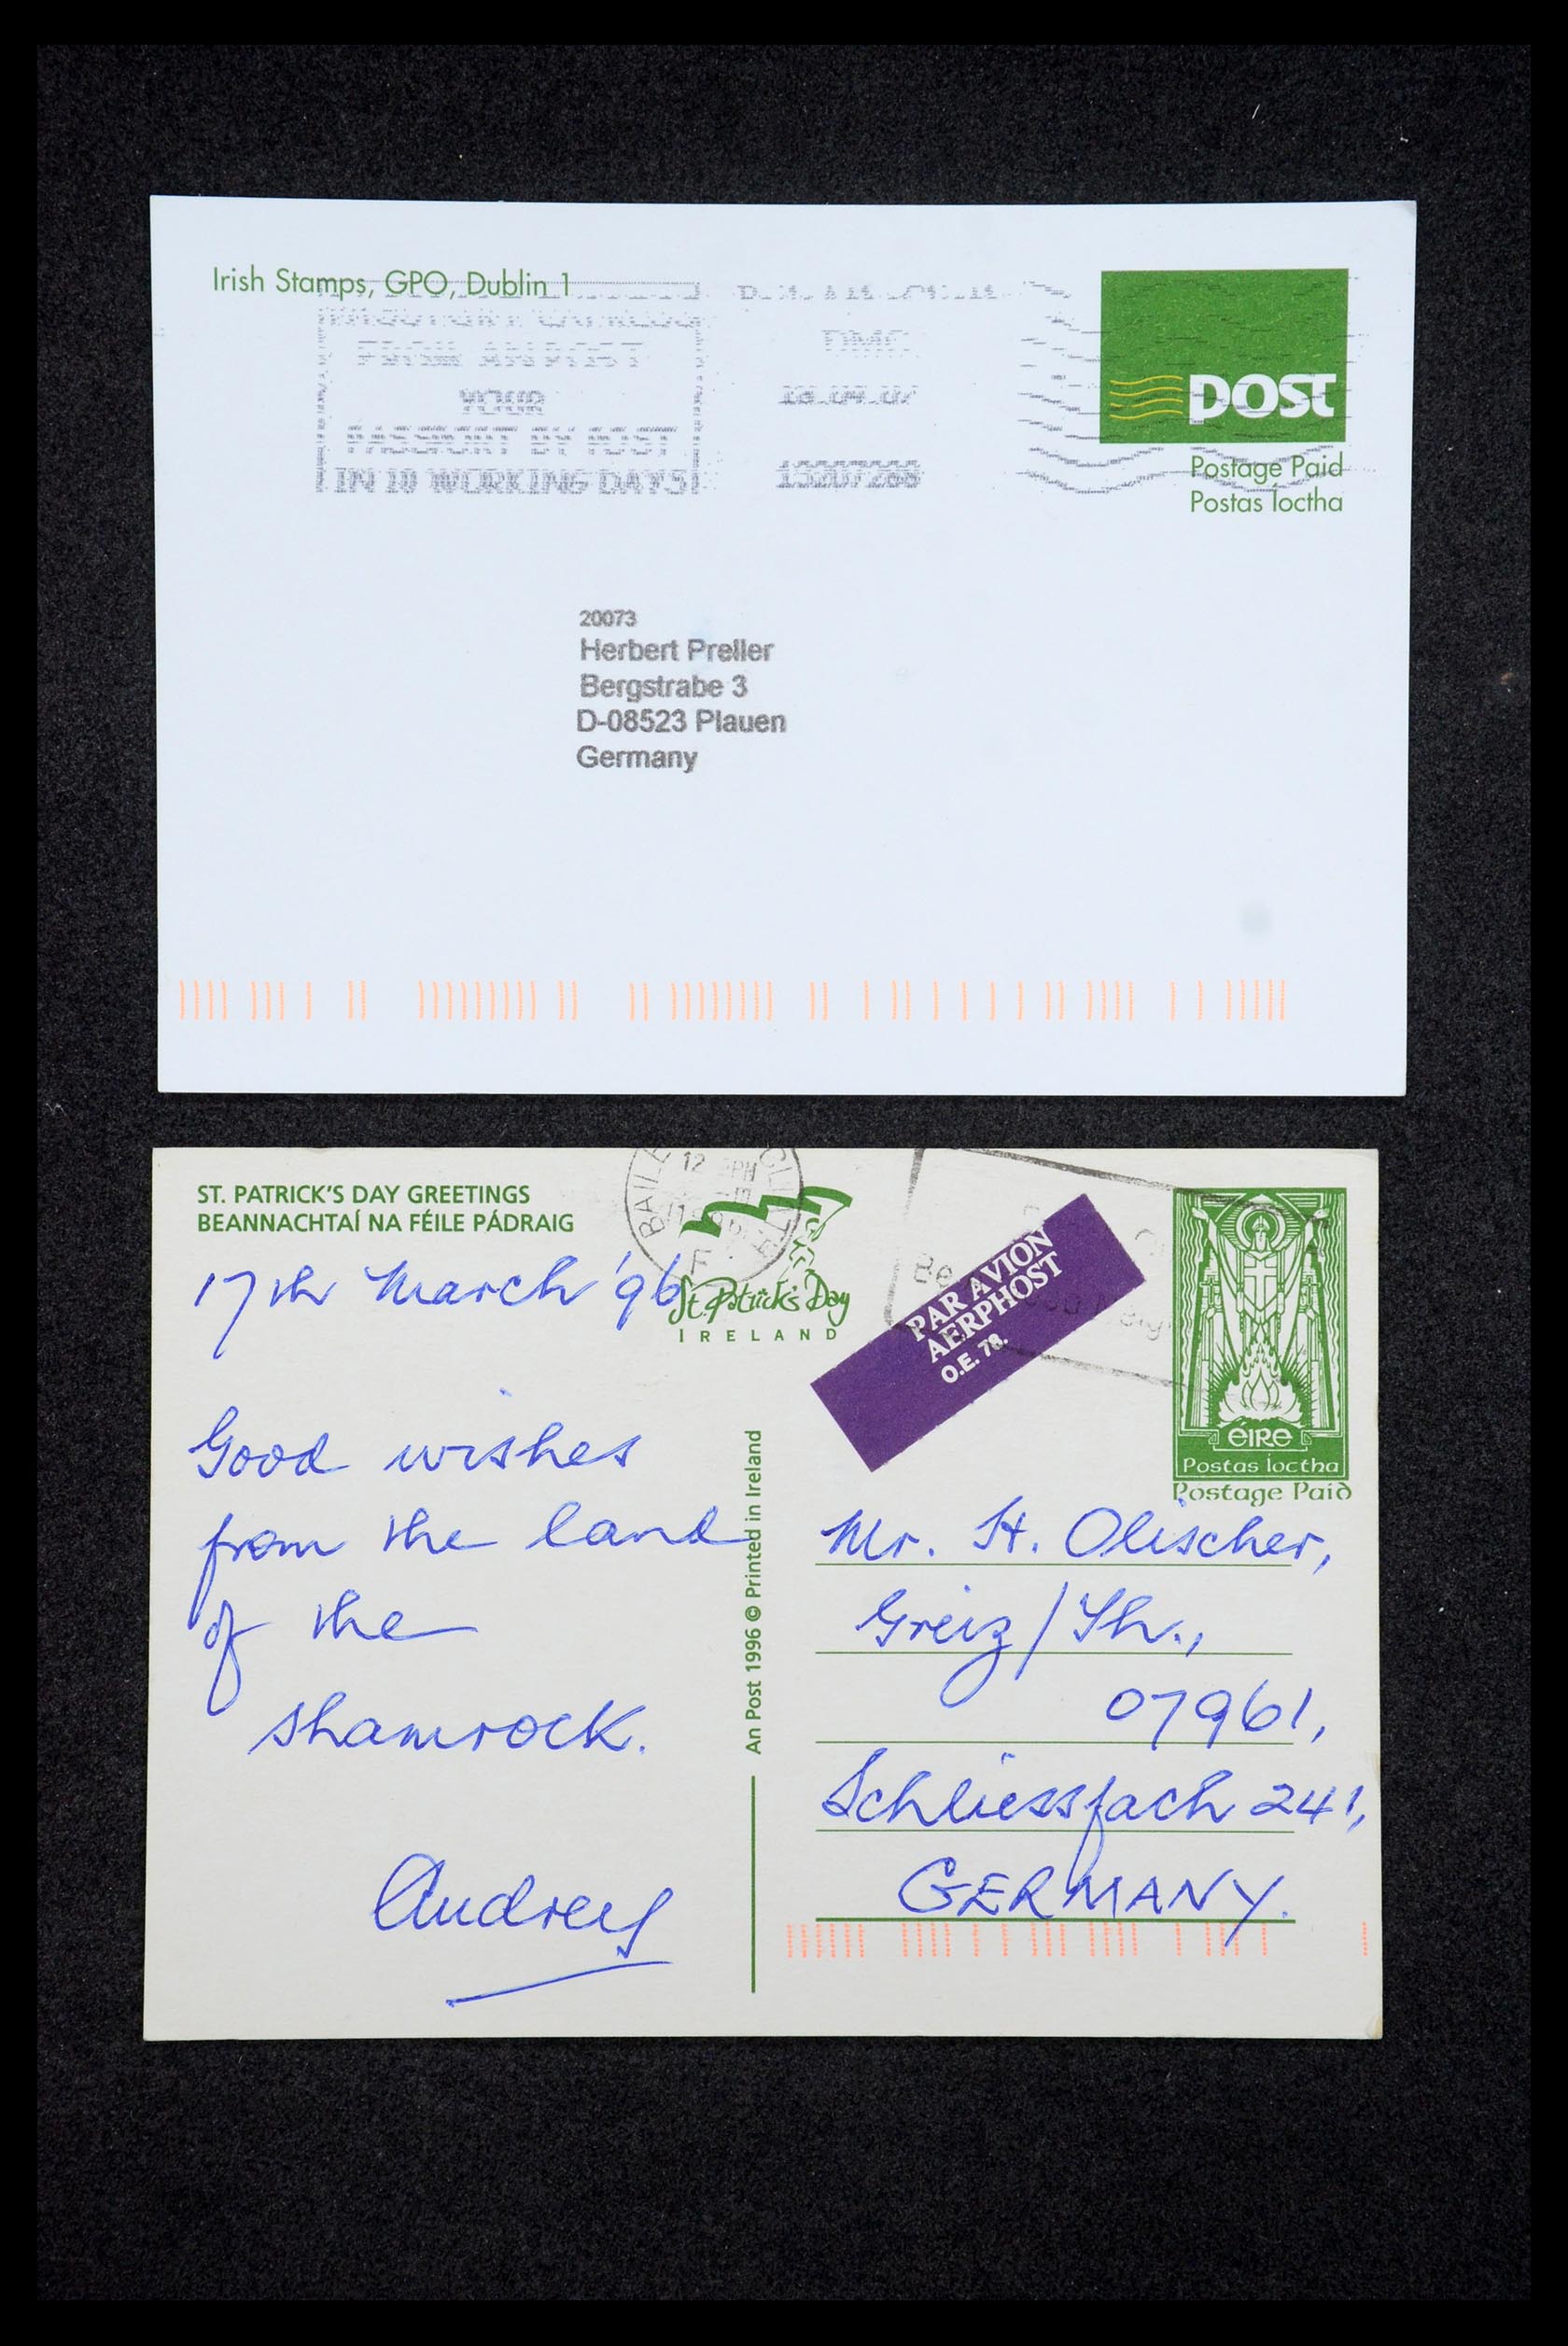 Irish Stamps, GPO, Dublin 1
PASSPORT EXPRESS
FROM AN POST
YOUR
PASSPORT BY POST
IN 10 WORKING DAYS
DMC
18.04.07
13207268
POST
Postage Paid
Postas Íoctha
20073
Herbert Preller
Bergstrabe 3
D-08523 Plauen
Germany
ST. PATRICK'S DAY GREETINGS
BEANNACHTAÍ NA FÉILE PÁDRAIG
BAILE
12
PM
F
St. Patrick's Day
IRELAND
PAR AVION
AERPHOST
O.E. 78.
ÉIRE
Postas Íoctha
Postage Paid
17th March '96
Good wishes
from the land
of the
shamrock.
Audrey
An Post 1996 © Printed in Ireland
Mr. H. Olischer,
Greiz/Th.,
07961,
Schliessfach 241,
GERMANY.